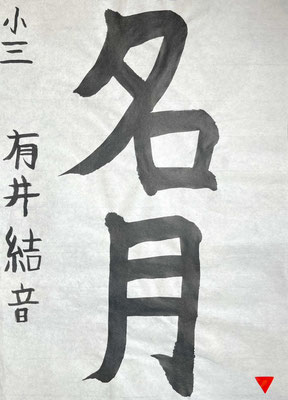 名月
小三 有井結音